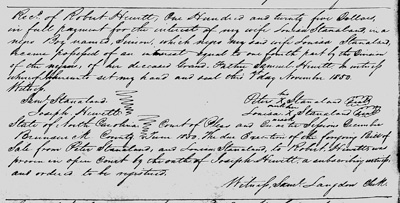 Recd. of Robert Hewitt, One Hundred and twenty five Dollars,
in full payment for the interest of my wife Louisa Stanaland, in a
negro Boy named Simon, which negro my said wife Louisa Stanaland,
became possessed of an interest equal to one fourth part by the
of the negroes, of her deceased Grand Father Samuel Hewitt. In witness
whereof I hereunto set my hand and seal this day November 1850.
Witness
Saml. Stanaland. Peter X Stanaland
Joseph Hewitt Louisa X Stanaland
State of North Carolina Court of Pleas and Quarter Sessions December
Brunswick County Term 1850. The due Execution of the foregoing Bill of
Sale from Peter Stanaland, and Louisa Stanaland, to Robert Hewitt was
proven in open Court by the oath of Joseph Hewitt, a subscribing witness
and ordered to be registered.
Witness, Saml. Langdon Clk